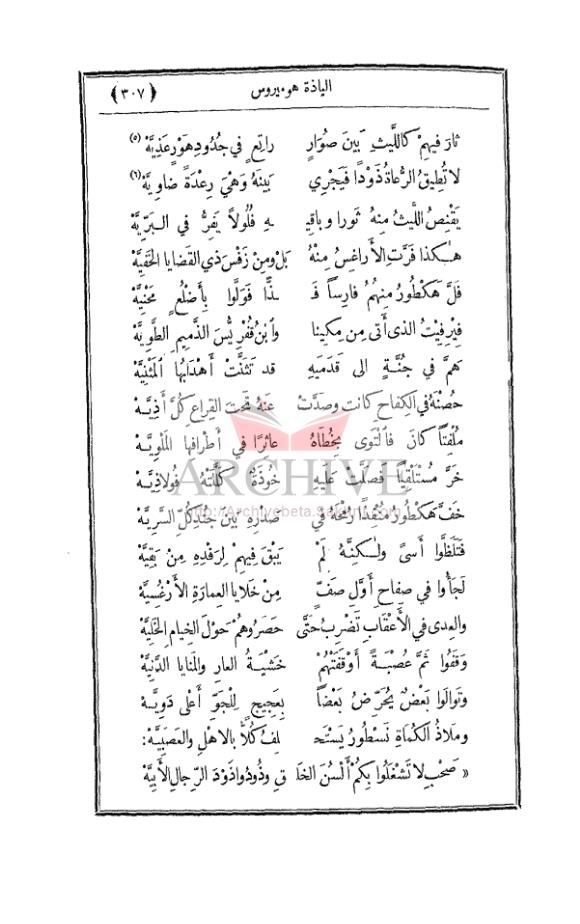 الياذة هوميروس (٣٠٧)
ثارَ فيهِمْ كالليثِ بَينَ صُوَارٍ راتِعٍ في حدُودِ هَوْرٍ عَذِيَّهْ (٥)
لا تُطِيقُ الرُّعاةُ ذَوْدًا فيَجْرِي بَينَهُ وَهْيَ رِعْدَةً ضاوِيَّهْ (٦)
يَقْنِصُ اللَّيثُ مِنهُ ثَورًا وباقِيـ ـهِ فُلُولاً يَفِرُّ في البَرِّيَّهْ
هٰكذا فَرَّتِ الأَراغِسُ مِنْهُ بَلْ ومِنْ زَفْسَ ذي القَضايا الخَفِيَّهْ
فَلَّ هَكْطُورُ مِنهُمُ فارِساً فَـ ـذًّا فَوَلَّوا بِأَضْلُعٍ مَحْنِيَّهْ
فِيرِفِيتُ الذي أَتى مِن مِكِينا وابنُ قُفْرِيُسَ الذَّمِيمِ الطَّوِيَّهْ
هَمَّ في جُنَّةٍ الى قَدَمَيهِ قد تَثَنَّتْ أَهْدَابُها المَثْنِيَّهْ
حُصْنَهُ في الكِفاحِ كانت وصَدَّتْ عَنهُ تَحتَ القِراعِ كلَّ أَذِيَّهْ
مُلْفِتًا كانَ فالْتَوى بِخُطَاهُ عاثِرًا في أَطرافِها المَلْوِيَّهْ
خَرَّ مُستَلْقِيًا فصَلَّتْ عَلَيهِ خُوذَةٌ كَلَّلَتْهُ فُولاذِيَّهْ
خَفَّ هَكْطُورُ مُنْفِذًا رُمْحَهُ في صَدْرِهِ بَيْنَ جُنْدِ كُلِّ السَّرِيَّهْ
فَتَلَظَّوا أَسىً ولٰكِنَّهُ لَمْ يَبْقَ فِيهِمْ لِرَفْدِهِ مِنْ بَقِيَّهْ
لَجَأُوا في صِفاحِ أَوَّلِ صَفٍّ مِنْ خَلايا العِمارَةِ الأَرْغُسِيَّهْ
والعِدى في الأَعْقَابِ تَضْرِبُ حَتَّى حَصَرُوهُمْ حَوْلَ الخِيامِ الخَلِيَّهْ
وَقَفُوا ثَمَّ عُصْبَةً أَوْقَفَتْهُمْ خَشْيَةُ العارِ والمَنايا الدَّنِيَّهْ
وتَوالَوا بَعضٌ يُحَرِّضُ بَعْضًا بِعَجِيجٍ لِلْجَوِّ أَعْلى دَوِيَّهْ
ومَلاذُ الكُماةِ نَسْطُورُ يَسْتَحـ ـلِفُ كُلاًّ بِالاهْلِ والعَصَبِيَّهْ:
« صَحْبِ لا تَشْغَلُوا بِكُمْ أَلْسُنَ الخَلْـ ـقِ وذُودُوا ذَوْدَ الرِّجالِ الأَبِيَّهْ
ARCHIVE
http://Archivebeta.Sakhrit.com